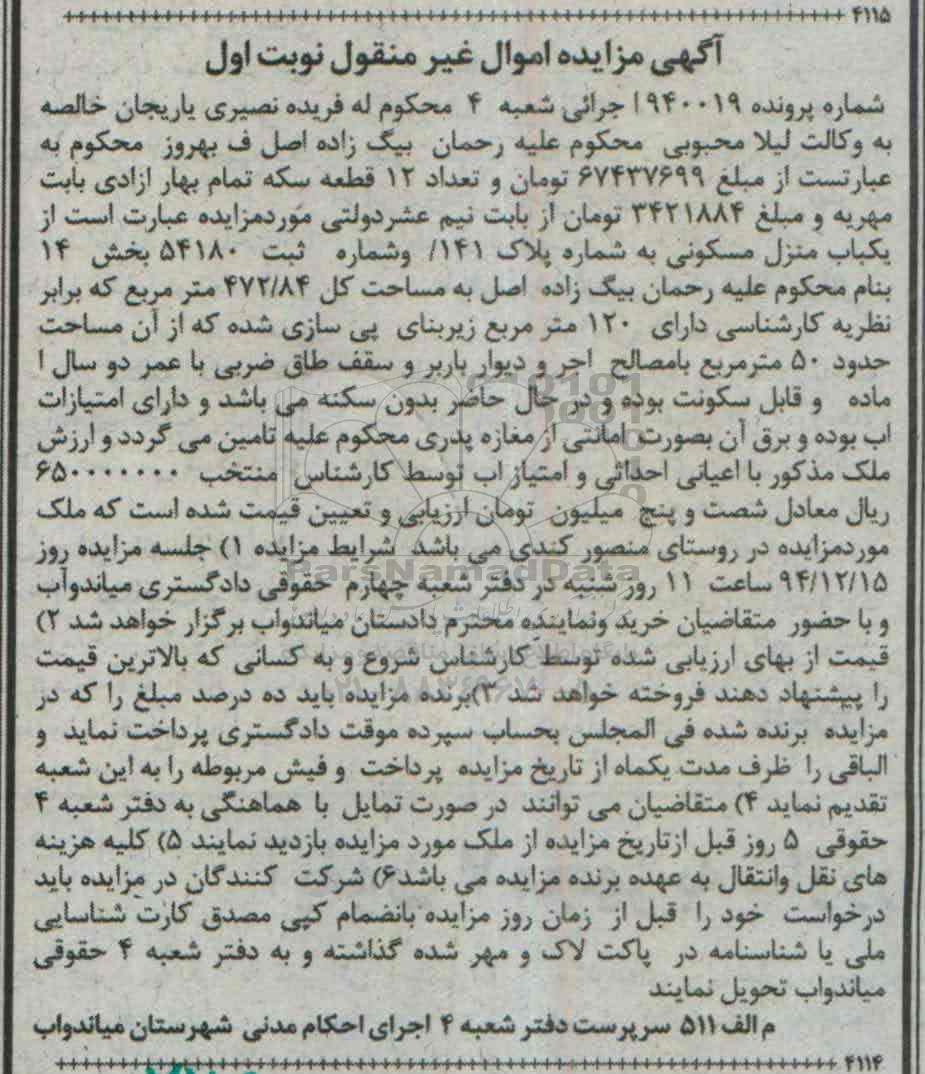 ۴۱۱۵
آگهی مزایده اموال غیر منقول نوبت اول
شماره پرونده ۹۴۰۰۱۹ ا جرائی شعبه ۴ محکوم له فریده نصیری یاریجان خالصه
به وکالت لیلا محبوبی محکوم علیه رحمان بیگ زاده اصل ف بهروز محکوم به
عبارتست از مبلغ ۶۷۴۳۷۶۹۹ تومان و تعداد ۱۲ قطعه سکه تمام بهار ازادی بابت
مهریه و مبلغ ۳۴۲۱۸۸۴ تومان از بابت نیم عشردولتی موردمزایده عبارت است از
یکباب منزل مسکونی به شماره پلاک ۱۴۱/ وشماره ثبت ۵۴۱۸۰ بخش ۱۴
بنام محکوم علیه رحمان بیگ زاده اصل به مساحت کل ۴۷۲/۸۴ متر مربع که برابر
نظریه کارشناسی دارای ۱۲۰ متر مربع زیربنای پی سازی شده که از آن مساحت
حدود ۵۰ مترمربع بامصالح اجر و دیوار باربر و سقف طاق ضربی با عمر دو سال ا
ماده و قابل سکونت بوده و در حال حاضر بدون سکنه می باشد و دارای امتیازات
اب بوده و برق آن بصورت امانتی از مغازه پدری محکوم علیه تامین می گردد و ارزش
ملک مذکور با اعیانی احداثی و امتیاز اب توسط کارشناس منتخب ۶۵۰۰۰۰۰۰۰
ریال معادل شصت و پنج میلیون تومان ارزیابی و تعیین قیمت شده است که ملک
موردمزایده در روستای منصور کندی می باشد شرایط مزایده ۱) جلسه مزایده روز
۹۴/۱۲/۱۵ ساعت ۱۱ روز شنبه در دفتر شعبه چهارم حقوقی دادگستری میاندوآب
و با حضور متقاضیان خرید ونماینده محترم دادستان میاندواب برگزار خواهد شد ۲)
قیمت از بهای ارزیابی شده توسط کارشناس شروع و به کسانی که بالاترین قیمت
را پیشنهاد دهند فروخته خواهد شد ۳)برنده مزایده باید ده درصد مبلغ را که در
مزایده برنده شده فی المجلس بحساب سپرده موقت دادگستری پرداخت نماید و
الباقی را ظرف مدت یکماه از تاریخ مزایده پرداخت و فیش مربوطه را به این شعبه
تقدیم نماید ۴) متقاضیان می توانند در صورت تمایل با هماهنگی به دفتر شعبه ۴
حقوقی ۵ روز قبل ازتاریخ مزایده از ملک مورد مزایده بازدید نمایند ۵) کلیه هزینه
های نقل وانتقال به عهده برنده مزایده می باشد۶) شرکت کنندگان در مزایده باید
درخواست خود را قبل از زمان روز مزایده بانضمام کپی مصدق کارت شناسایی
ملی یا شناسنامه در پاکت لاک و مهر شده گذاشته و به دفتر شعبه ۴ حقوقی
میاندواب تحویل نمایند
م الف ۵۱۱ سرپرست دفتر شعبه ۴ اجرای احکام مدنی شهرستان میاندواب
۴۱۱۴
ParsNamadData